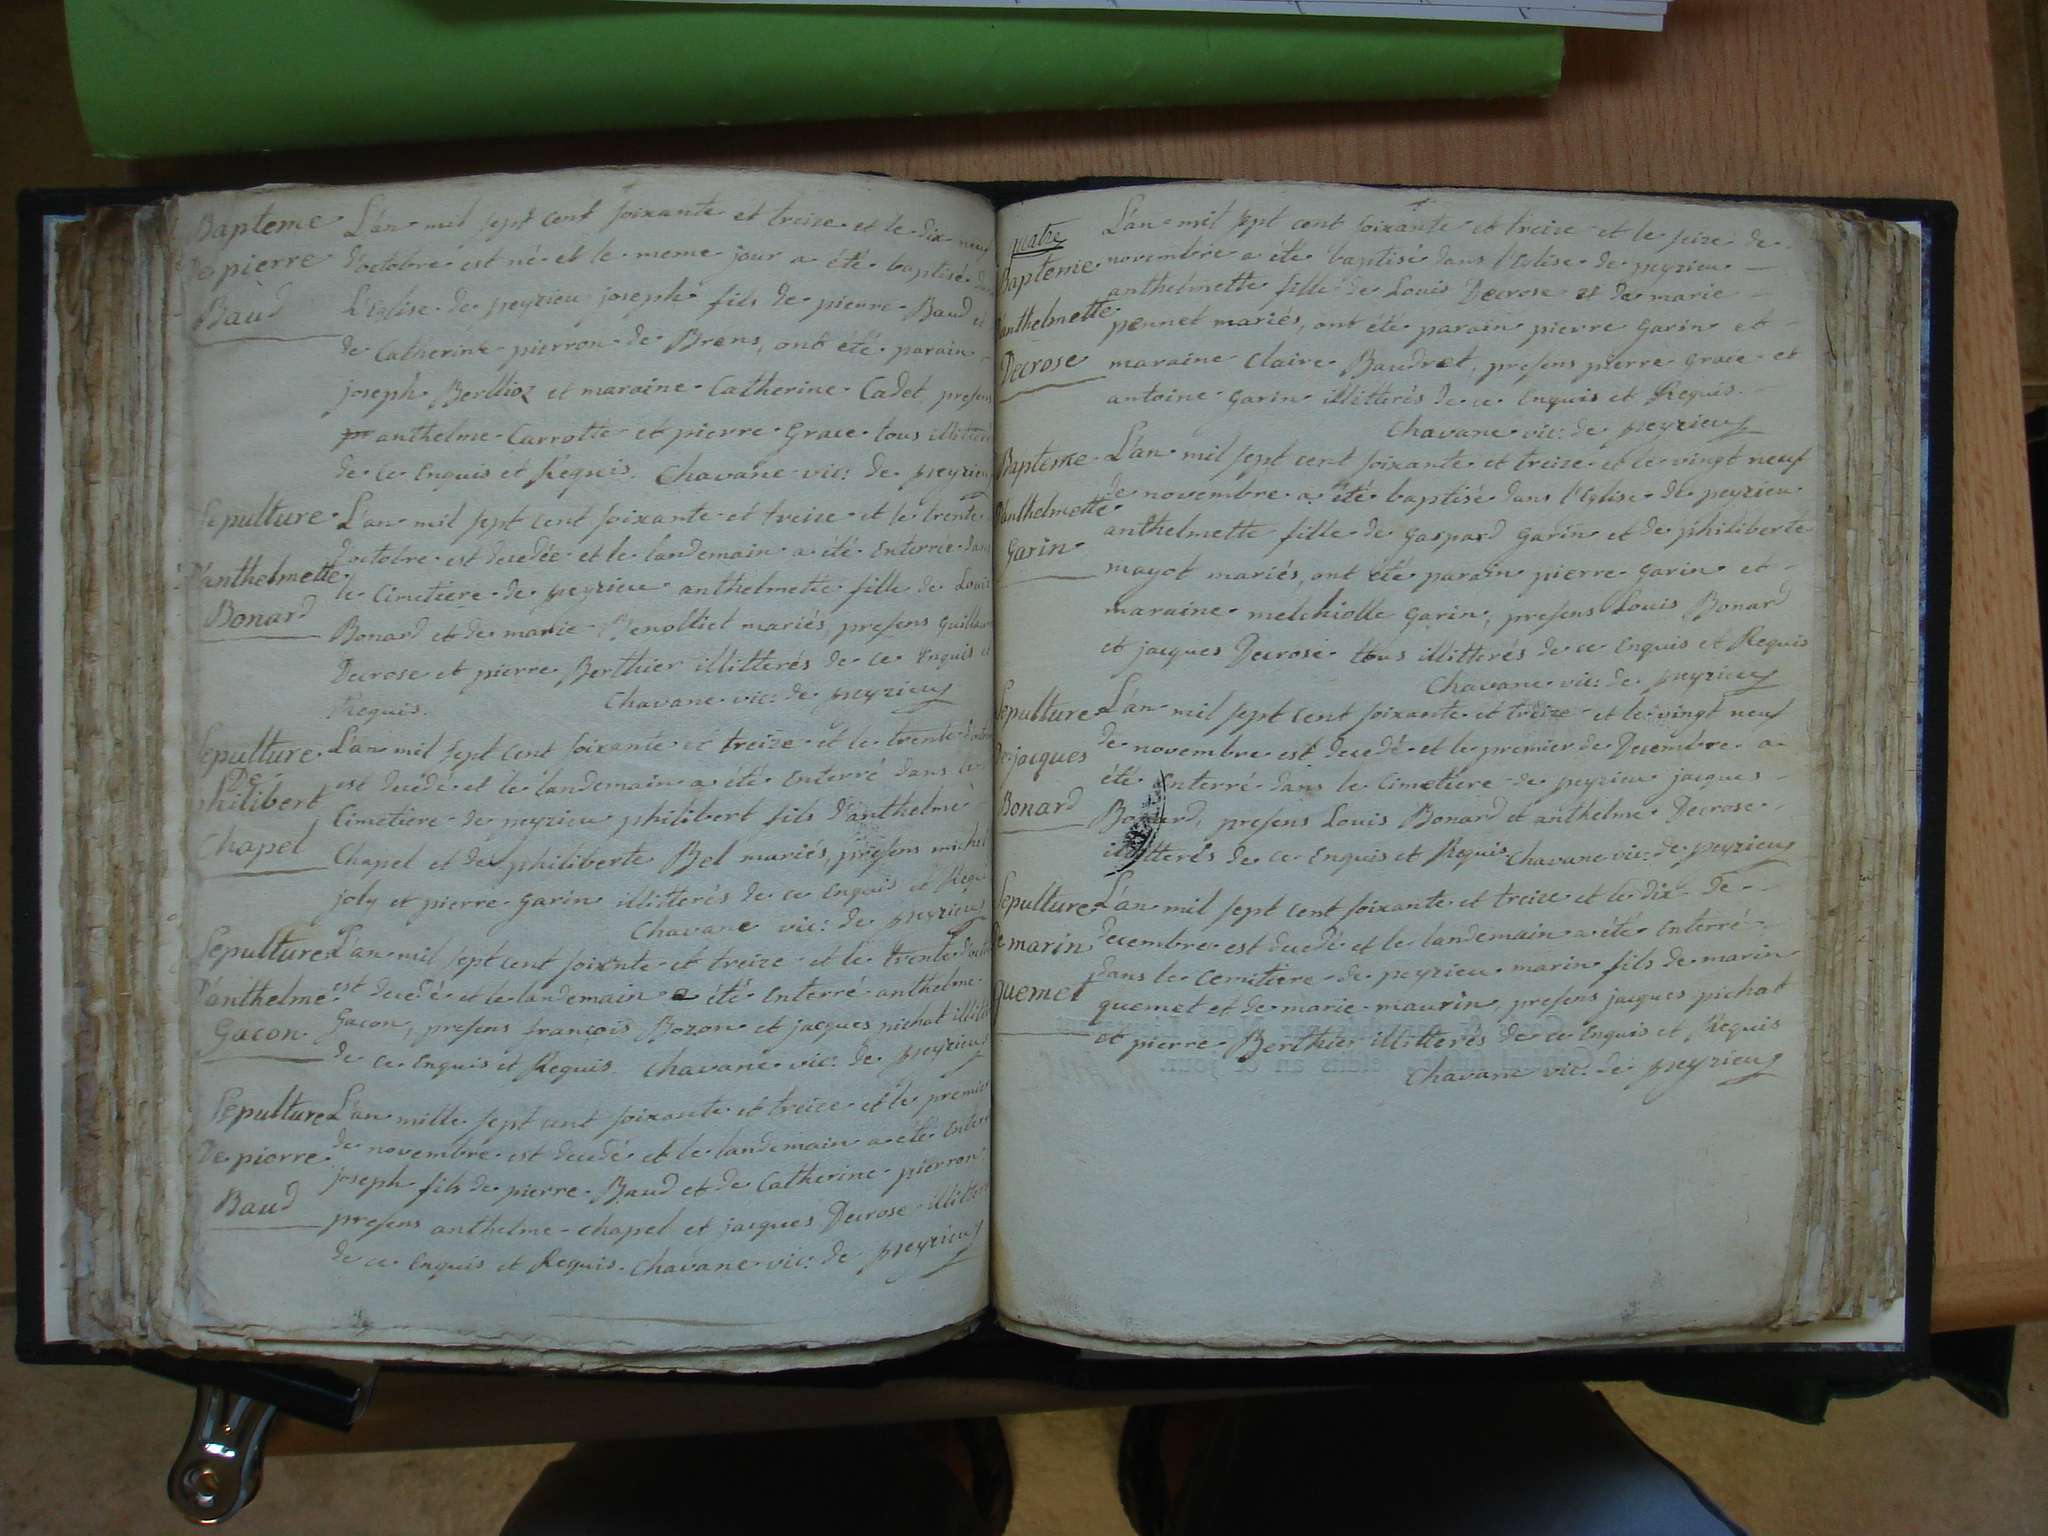 Bapteme
De pierre
Baud
L'an mil sept cent soixante et treize et le dix neuf
d'octobre est né et le meme jour a été baptisé dans
L'Eglise de peyzieu joseph fils de pierre Baud et
de Catherine pierron de Brens, ont été parain
joseph Berllioz et maraine Catherine Cadet, presens
anthelme Carrotte et pierre Grace tous illitterés
de ce Enquis et Requis. Chavane vic: de peyzieu
Sepulture
D'anthelmette
Bonard
L'an mil sept cent soixante et treize et le trente
d'octobre est decedée et le landemain a été Enterrée dans
le Cimetiere de peyzieu anthelmette fille de Louis
Bonard et de marie Benolliet mariés, presens Guillaume
Decrose et pierre Berthier illitterés de ce Enquis et
Requis. Chavane vic: de peyzieu
Sepulture
De
philibert
Chapel
L'an mil sept cent soixante et treize et le trente d'octobre
est decedé et le landemain a été Enterré dans le
Cimetiere de peyzieu philibert fils d'anthelme
Chapel et de philiberte Bel mariés, presens michel
joly et pierre garin illitterés de ce Enquis et Requis
Chavane vic: de peyzieu
Sepulture
D'anthelme
Gacon
L'an mil sept cent soixnte et treize et le trente d'octobre
est decedé et le landemain a été Enterré anthelme
Gacon, presens françois Bozon et jacques pichat illitterés
de ce Enquis et Requis. Chavane vic: de peyzieu
Sepulture
De pierre
Baud
L'an mille sept cent soixante et treize et le premier
de novembre est decedé et le landemain a été Enterré
joseph fils de pierre Baud et de Catherine pierron
presens anthelme chapel et jacques Decrose illitterés
de ce Enquis et Requis. Chavane vic: de peyzieu
quatre
Bapteme
D'anthelmette
Decrose
L'an mil sept cent soixante et treize et le seize de
novembre a été baptisé dans l'Eglise de peyzieu
anthelmette fille de Louis Decrose et de marie
pennet mariés, ont été parain pierre garin et
maraine Claire Baudret, presens pierre grace et
antoine garin illitterés de ce Enquis et Requis.
Chavane vic: de peyzieu
Bapteme
D'anthelmette
Garin
L'an mil sept cent soixante et treize et le vingt neuf
de novembre a été baptisé dans l'Eglise de peyzieu
anthelmette fille de gaspard garin et de philiberte
mayot mariés, ont été parain pierre garin et
maraine melchiolle garin, presens Louis Bonard
et jacques Decrose tous illitterés de ce Enquis et Requis
Chavane vic: de peyzieu
Sepulture
De jacques
Bonard
L'an mil sept cent soixante et treize et le vingt neuf
de novembre est decedé et le premier de Decembre a
été Enterré dans le Cimetiere de peyzieu jacques
Bonard, presens Louis Bonard et anthelme Decrose
illitterés de ce Enquis et Requis Chavane vic: de peyzieu
Sepulture
De marin
Quemet
L'an mil sept cent soixante et treize et le dix de
decembre est decedé et le landemain a été Enterré
dans le Cemitiere de peyzieu marin fils de marin
quemet et de marie maurin, presens jacques pichat
et pierre Berthier illitterés de ce Enquis et Requis
Chavane vic: de peyzieu